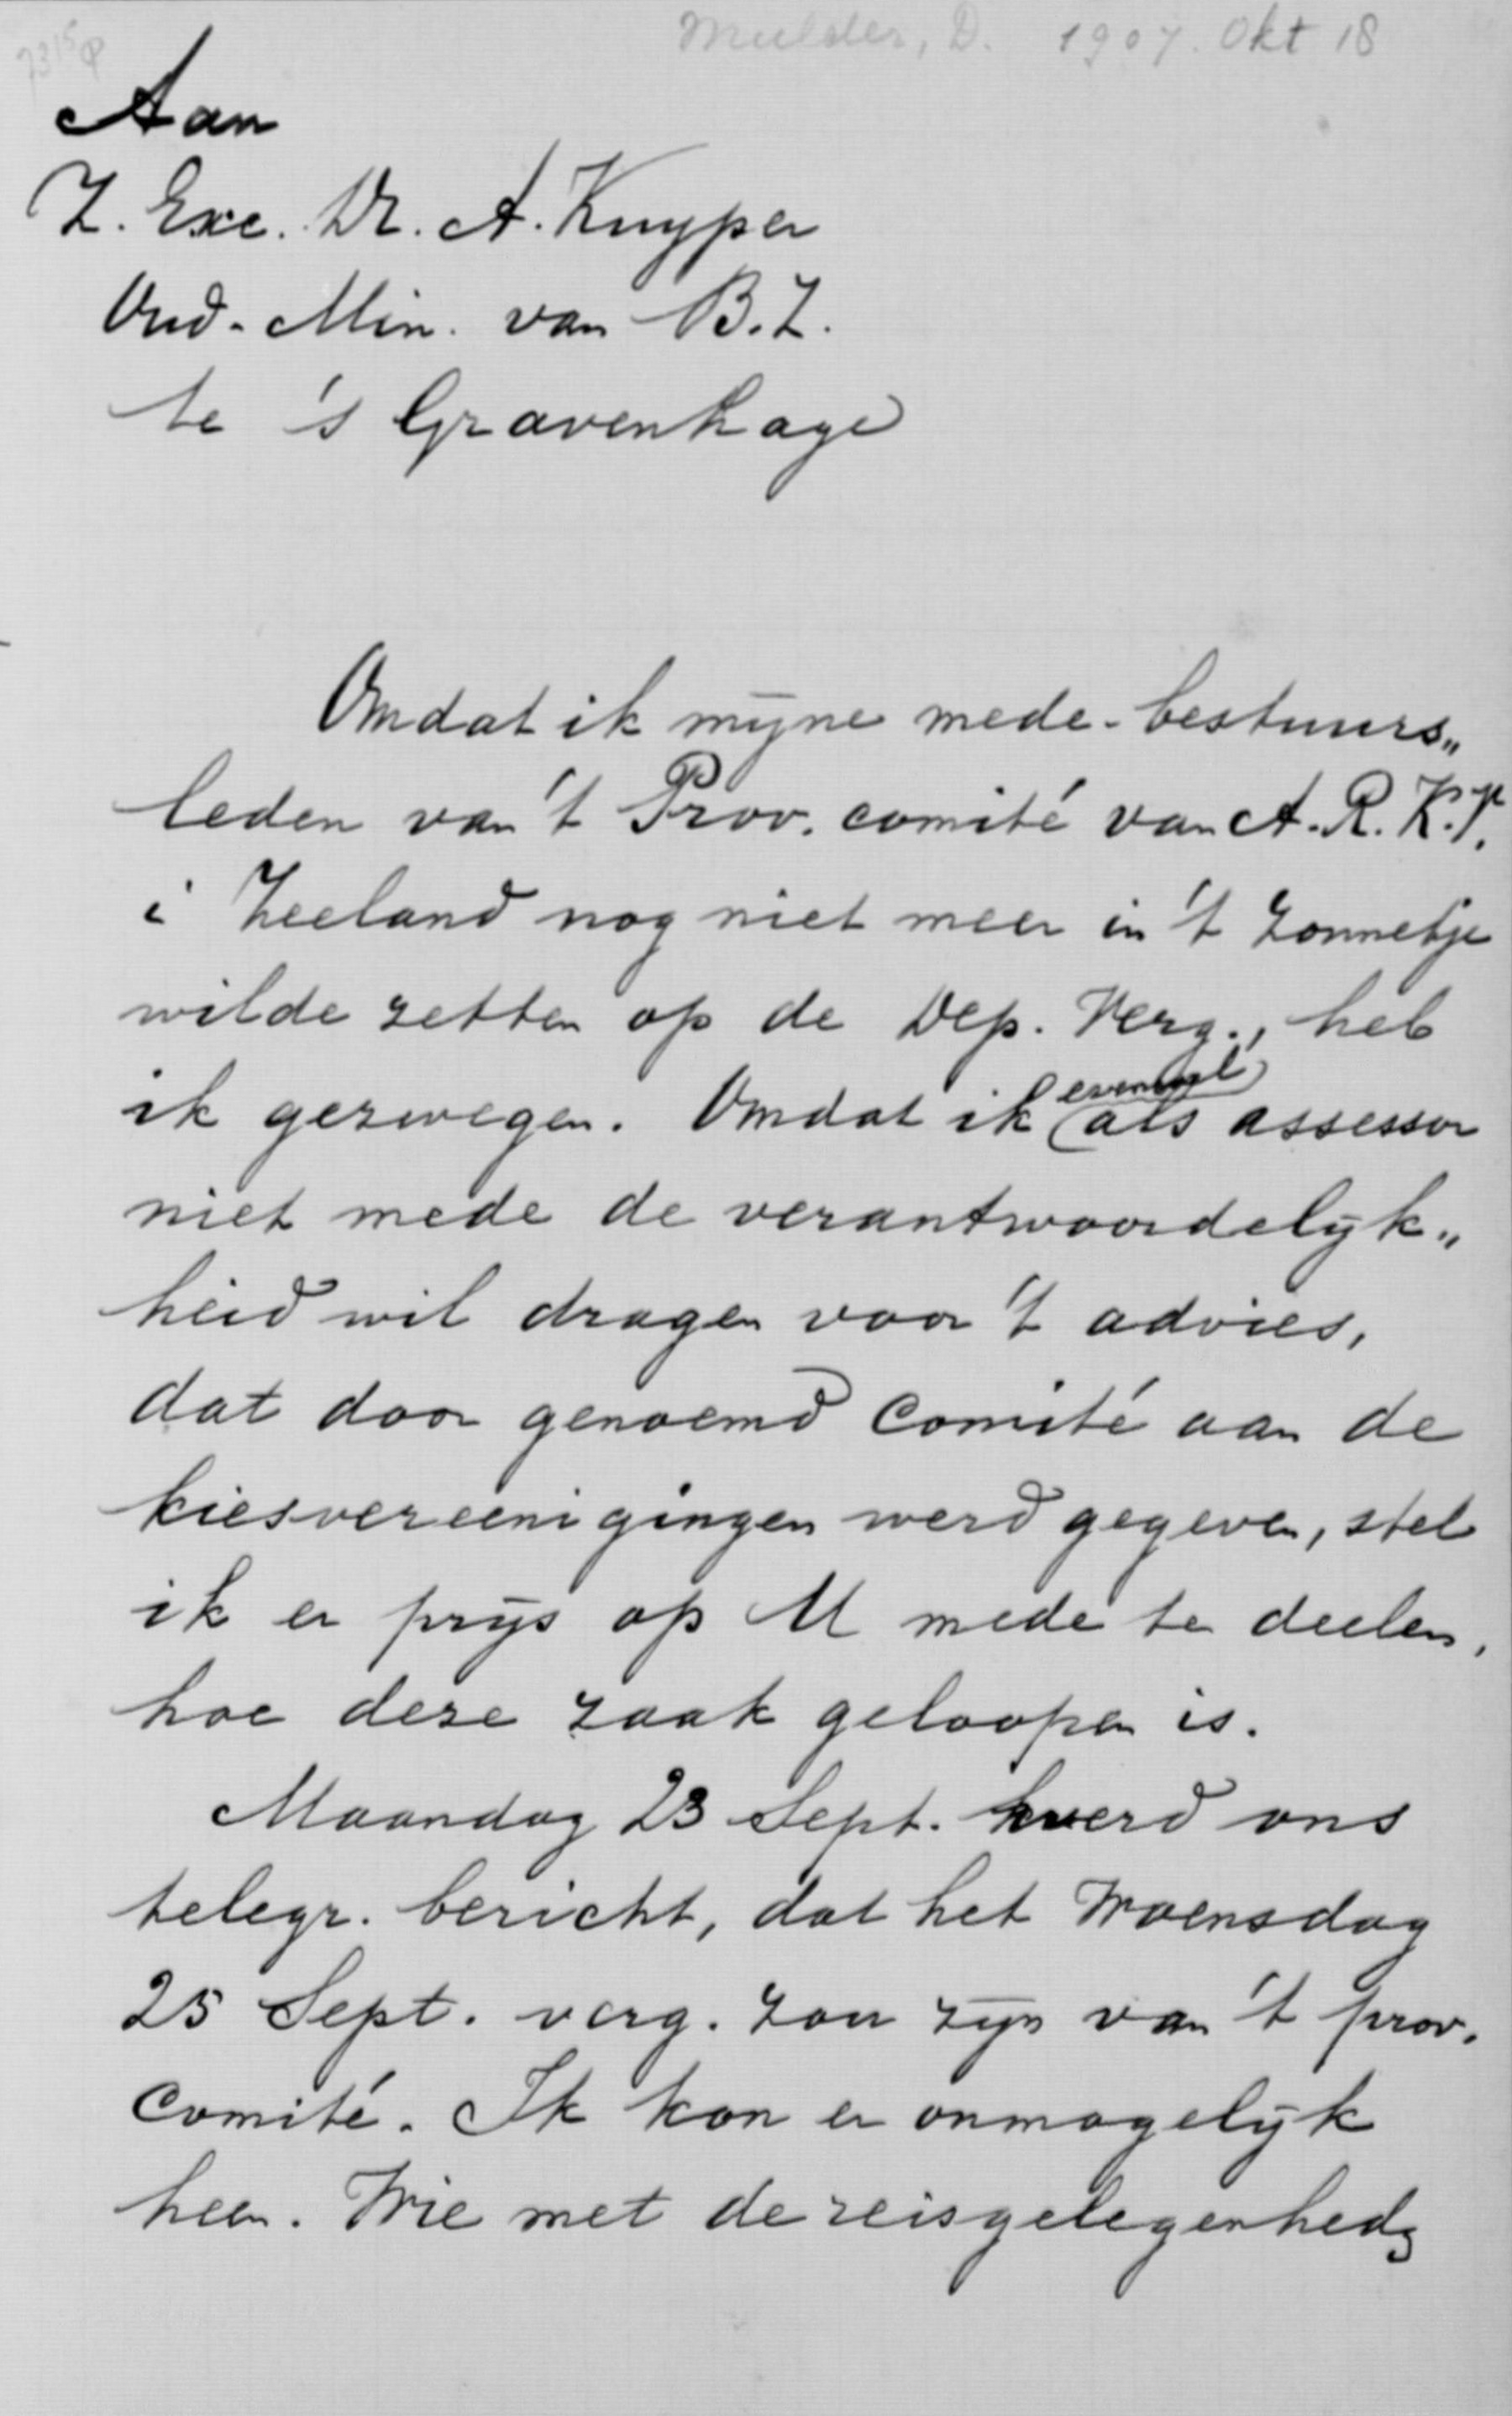 Mulder, D. 1907. Okt 18
7315
Aan
Z. Exc. Dr. A. Kuyper
Oud-Min. van B.Z.
te 's Gravenhage
Omdat ik mijne mede-bestuurs„
leden van 't Prov. comité van A.R.K.V.
i Zeeland nog niet meer in 't zonnetje
wilde zetten op de Dep. Verg., heb
ik gezwegen. Omdat ik evenwel als assessor
niet mede de verantwoordelijk„
heid wil dragen voor 't advies,
dat door genoemd comité aan de
kiesvereenigingen werd gegeven, stel
ik er prijs op U mede te deelen,
hoe deze zaak geloopen is.
Maandag 23 Sept. werd ons
telegr. bericht, dat het Woensdag
25 Sept. verg. zou zijn van 't prov.
comité. Ik kon er onmogelijk
heen. Wie met de reisgelegenhed